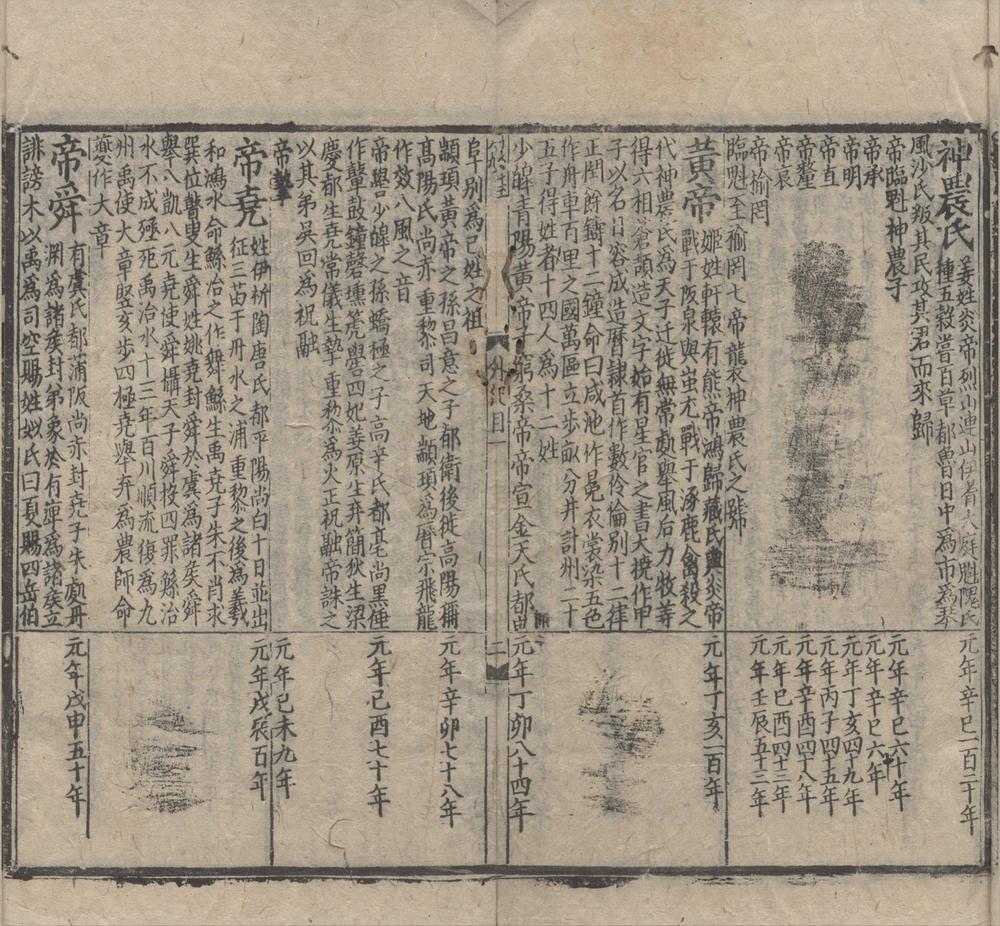 神農氏 姜姓炎帝烈山連山伊耆大庭魁隗氏
種五穀嘗百草都魯日中為市為琴
元年辛巳一百二十年
風沙氏叛其民攻其君而來歸
帝臨魁 神農子
元年辛巳六十年
帝承
元年辛巳六年
帝明
元年丁亥四十九年
帝直
元年丙子四十五年
帝釐
元年辛酉四十八年
帝哀
元年己酉四十三年
帝榆罔
元年壬辰五十五年
臨魁至榆罔七帝襲神農氏之號
黃帝 姬姓軒轅有熊帝鴻歸藏氏與炎帝
戰于阪泉與蚩尤戰于涿鹿禽殺之
元年丁亥一百年
代神農氏為天子迁徙無常處舉風后力牧等
得六相蒼頡造文字始有星官之書大撓作甲
子以名日容成造曆隸首作數伶倫別十二律
正閏餘鑄十二鐘命曰咸池作冕衣裳染五色
作舟車百里之國萬區立步畝分井計州二十
五子得姓者十四人為十二姓
少皞青陽黃帝子窮桑帝帝宣金天氏都曲
元年丁卯八十四年
外紀目一
二
阜別為己姓之祖
顓頊黃帝之孫昌意之子都衛後徙高陽稱
元年辛卯七十八年
高陽氏尚赤重黎司天地顓頊爲曆宗飛龍
作效八風之音
帝嚳少皞之孫蟜極之子高辛氏都亳尚黑倕
元年己酉七十年
作鼙鼓鐘磬壎篪嚳四妃姜原生弃簡狄生
慶都生堯常儀生摯重黎為火正祝融帝誅之
以其弟吳回為祝融
帝摯
元年己未九年
帝堯 姓伊祈陶唐氏都平陽尚白十日並出
征三苗于丹水之浦重黎之後為羲
元年戊辰百年
和鴻水命鯀治之作舞鯀生禹堯子朱不肖求
巽位瞽叟生舜姓姚堯封舜於虞為諸矦舜
舉八凱八元堯使舜攝天子舜投四罪鯀治
水不成殛死禹治水十三年百川順流復為九
州禹使大章豎亥步四極堯舉弃為農師命
夔作大章
帝舜 有虞氏都蒲阪尚赤封堯子朱處丹
淵為諸矦封弟象於有庳為諸矦立
元年戊申五十年
誹謗木以禹為司空賜姓姒氏曰夏賜四岳伯